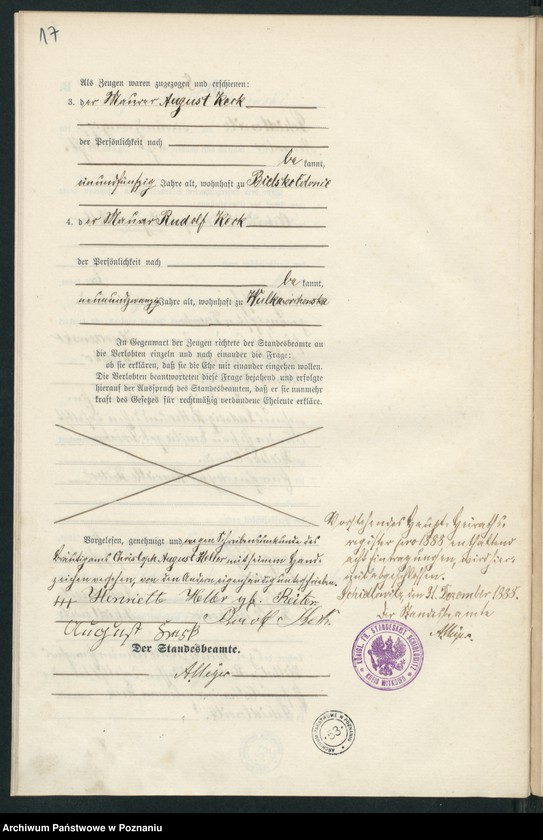 17
Als Zeugen waren zugezogen und erschienen:
3. der Maurer August Keck
der Persönlichkeit nach
be kannt,
einundfünfzig Jahre alt, wohnhaft zu
4. der Maurer Rudolf Keck
der Persönlichkeit nach
be kannt,
neunundzwanzig Jahre alt, wohnhaft zu
In Gegenwart der Zeugen richtete der Standesbeamte an
die Verlobten einzeln und nach einander die Frage:
ob sie erklären, daß sie die Ehe mit einander eingehen wollen.
Die Verlobten beantworteten diese Frage bejahend und erfolgte
hierauf der Ausspruch des Standesbeamten, daß er sie nunmehr
kraft des Gesetzes für rechtmäßig verbundene Eheleute erkläre.
Vorgelesen, genehmigt und wegen Schreibensunkunde des
Bräutigams Christoph August Heller mit seinem Hand-
zeichen versehen, von den Andern eigenhändig unterschrieben.
+++ Henriette Heller geb. Reiter
August
Der Standesbeamte.
Vorstehendes Haupt-Heiraths-
register pro 1888 enthaltend
acht Eintragungen, wird hier-
mit abgeschlossen.
den 31. Dezember 1888.
Der Standesbeamte
KÖNIGL. PR. STANDESAMT
KREIS WITKOWO
ARCHIWUM PAŃSTWOWE W POZNANIU
53
Archiwum Państwowe w Poznaniu